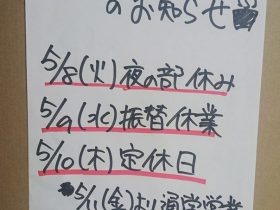 のお知らせ
5/8(火)夜の部休み
5/9(水)振替休業
5/10(木)定休日
5/11(金)より通常営業